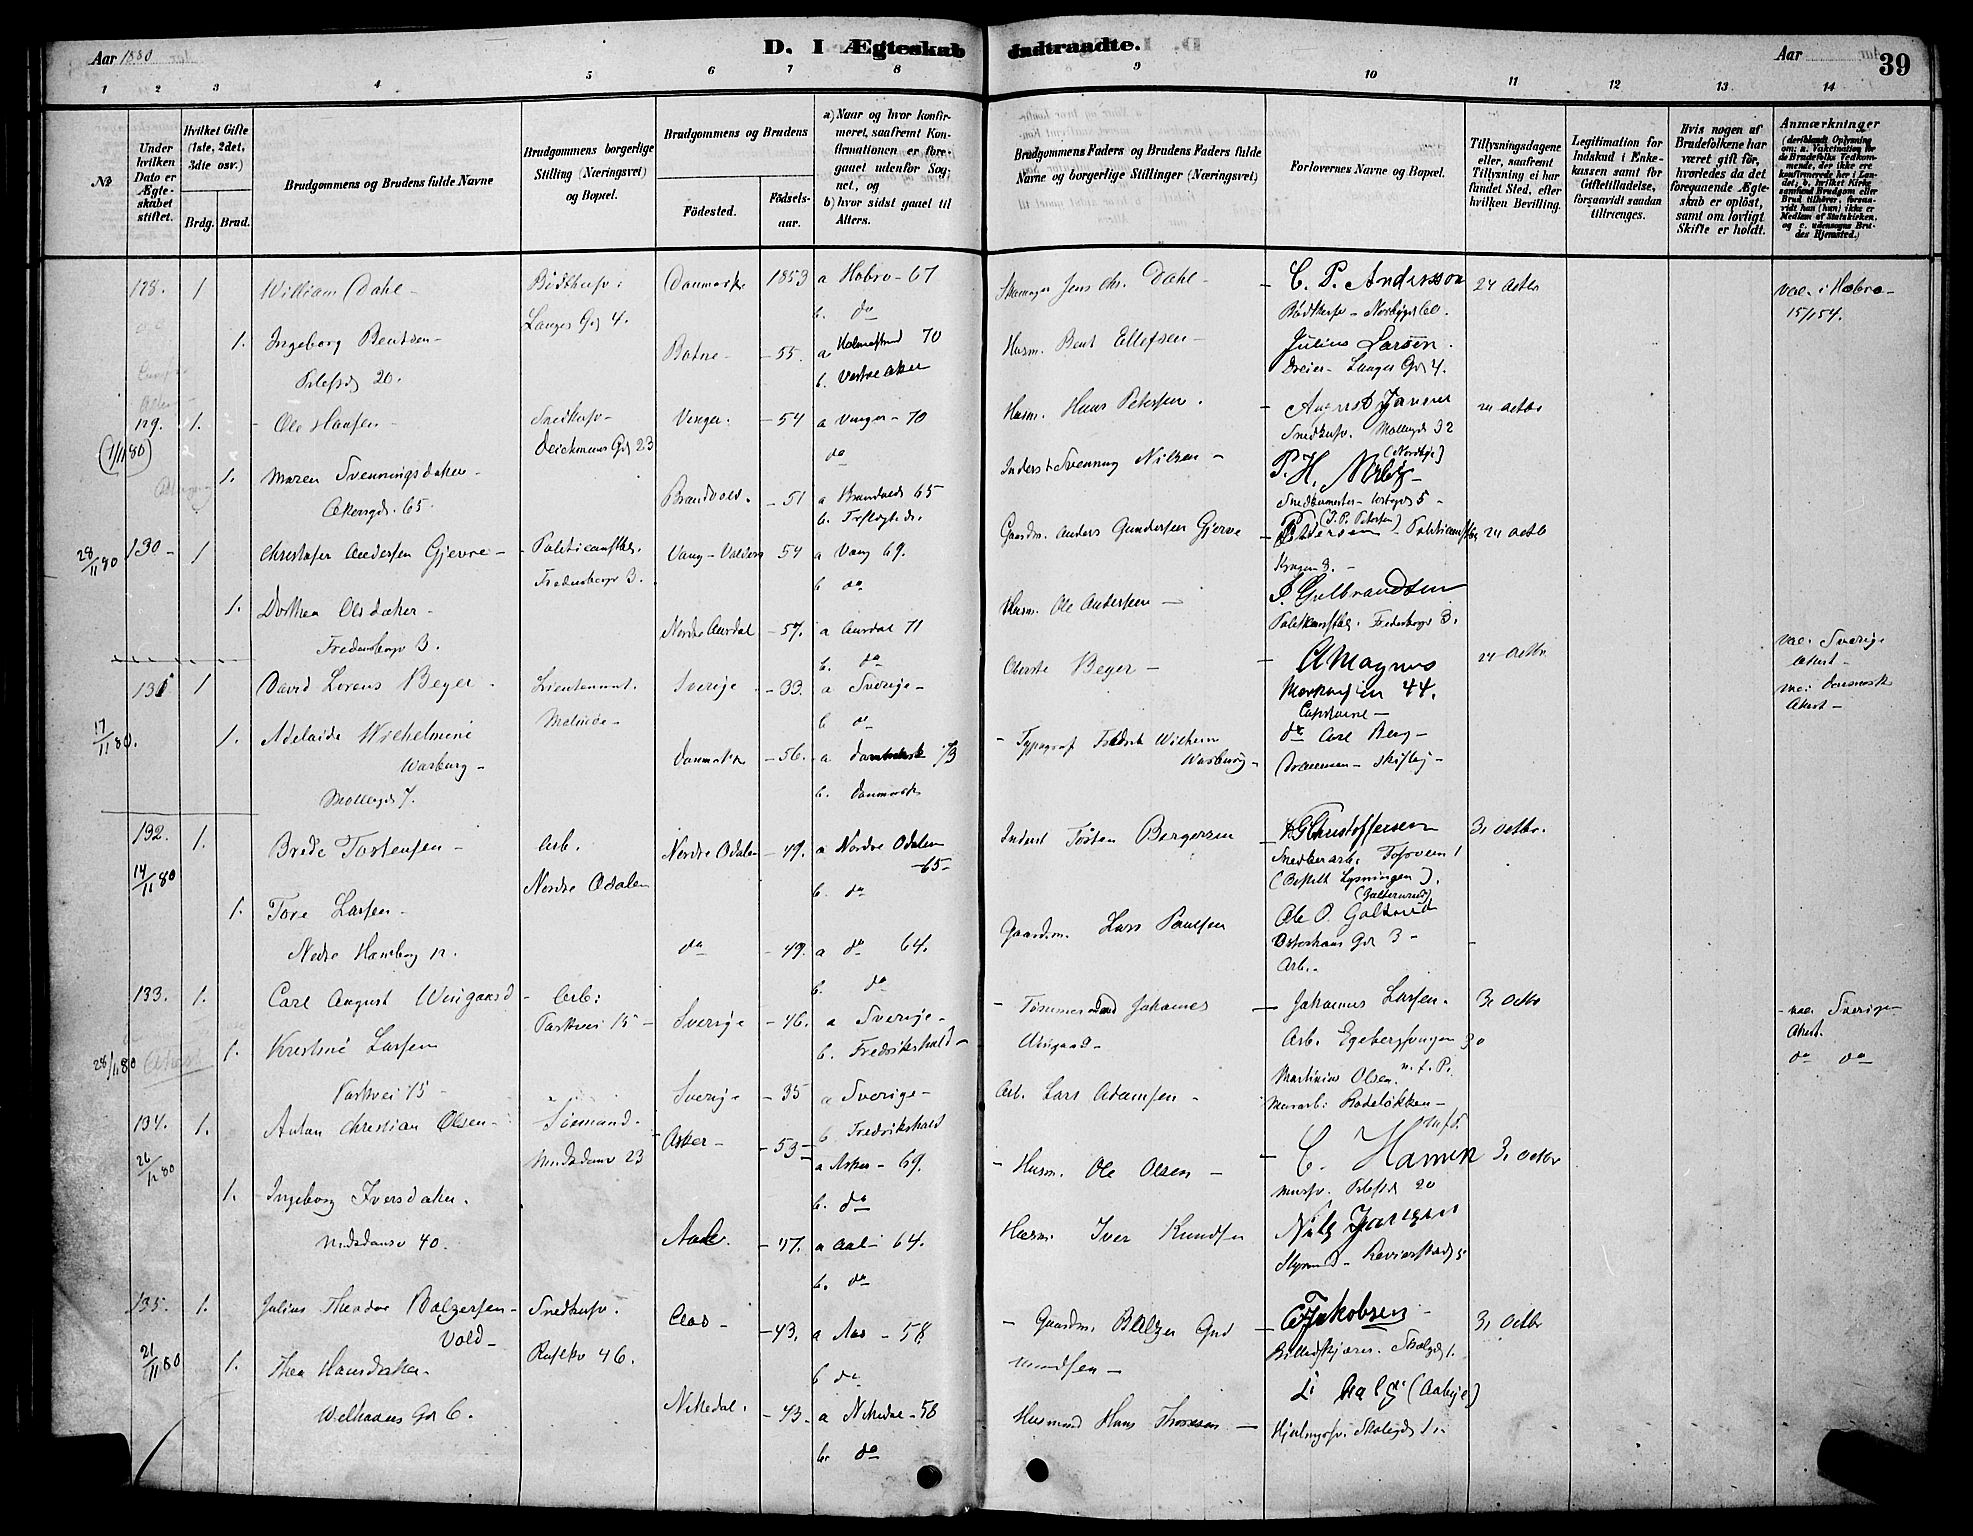 Aar 1880
D. I Ægteskab Indtraadte.
Aar
39
1 2 3 4 5 6 7 8 9 10 11 12 13 14
№
Under hvilken Dato er Ægteskabet stiftet.
Hvilket Gifte (1ste, 2det, 3die osv.)
Brdg. Brud.
Brudgommens og Brudens fulde Navne
Brudgommens borgerlige Stilling (Næringsvei) og Bopæl.
Brudgommens og Brudens
Fødested.
Fødselsaar.
a) Naar og hvor konfirmeret, saafremt Konfirmationen er foregaaet udenfor Sognet, og
b) hvor sidst gaaet til Alters.
Brudgommens Faders og Brudens Faders fulde Navne og borgerlige Stillinger (Næringsvei)
Forlovernes Navne og Bopæl.
Tillysningsdagene eller, saafremt Tillysning ei har fundet Sted, efter hvilken Bevilling.
Legitimation for Indskud i Enkekassen samt for Giftetilladelse, forsaavidt saadan tiltrænges.
Hvis nogen af Brudefolkene har været gift før, hvorledes da det foregaaende Ægteskab er opløst, samt om lovligt Skifte er holdt.
Anmærkninger
(deriblandt Oplysning om: a. Vakcination for de Brudefolks Vedkommende, der ikke ere konfirmerede her i Landet, b. hvilket Kirkesamfund Brudgom eller Brud tilhører, forsaavidt han (hun) ikke er Medlem af Statskirken, og c. udensogns Brudes Hjemsted.)
128. 1 William Dahl - Bødkersv: Danmark 1853 a Hobro - 67 Jens Chr. Dahl - C. P. Andersson 24 Octbr vac. i Hobro -
Langes Gd 4. b. do Bødkersv - Norbygd 60. 15/1 54.
1. Ingeborg Bentsen - Botne - - 55. a Holmestrand 70 Husm. Bent Ellefsen - Julius Larsen.
Pilestd 20. b. Vestre Aker Dreier - Langes Gd 4.
129. 1. Ole Hansen - Snedkersv - Vinger. - 54 a Vinger - 70 Husm. Hans Petersen. - August Jansen 24 Octbr
(1/11 80) Deichmans Gd 23 do Snedkersv. Møllergd 32
1. Maren Svenningsdatter - Brandvold. - 51 a Brandvold 65 Inderst Svenning Nilsen - P. H. (Nordbye)
Akersgd. 65. b. Snedkermester - 5 -
28/11 80 130 - 1 Christofer Andersen Gjevre - Politiconstbl. Vang - Valders 54 a Vang 69. Gaardm. Anders Gundersen Gjerve - (J. P. Petersen) Pedersen - Politiconstbl 24 Octbr
Fredensborgv 3. b. do Krogen 3. -
1. Dorthea Olsdatter - Nordre Aurdal - 57. a Aurdal 71 Husm. Ole Andersen - Gulbrandsen
Fredensborgv 3. b. do Politikonstbl. Fredensborgv 3.
131 1 David Lorens Beyer - Lieutenant. Sverige - 33. a Sverige - Oberste Beyer - A Magnus 24 Octbr vac. Sverige
Malmöe - b do Markveien 44. Attest -
17/11 80. 1. Adelaide Wilhelmine Danmark - 56. a Danmark 73 - Typograf Fredrik Wilhelm do Carl Berg - vac. Danmark
Warburg - b. Danmark Warburg - Drammen - Attest -
Møllergd 7.
132. 1. Brede Tostensen - Arb. Nordre Odalen - 49. a Nordre Odalen Inderst Tosten Bergersen Christoffersen 31 Octbr.
14/11 80 Nordre Odalen - 65 - b. do Snedkerarb. 1
(Bestilt Lysningen).
1. Tore Larsen - do - 49. a do 64. Gaardm. Lars Paulsen Ole O. Galterud (Galterud)
Nedre Hamborg 12. b. do Osterhaus Gd 3 -
Arb. -
133. 1. Carl August Wingaard - Arb: Sverige - 46. a Sverige - - Tømmermand Johannes - Johannes Larsen. 31 Octbr - vac. Sverige
Parkvei 15 - b. Fredrikshald - Wingaard - Arb. Egebergsvangen 30 Attest.
28/11 80 Attest 1. Kristine Larsen Sverige - 35 a Sverige - Arb. Lars Adamsen - Martinius Olsen. m. f. P. do do
Parkvei 15 - b Fredrikshald Murarb: Rodeløkken - m. f. P.
134. 1. Anton Christian Olsen - Sømand. Asker - - 53 a Asker - 69. - Husm. Ole Olsen - - C. Hansen 31 Octbr
26/12 80 Maridalsv 23 b. do Mursv. Pilestd 20
1. Ingeborg Iversdatter. Aal. - 47. a Aal - 64. Husm. Iver Knudsen Nils Jansen
Maridalsv 40. b. do Styrmd - Revierstrædet 5
135. 1. Julius Theodor Balzersen - Snedkersv. Aas - - 43. a Aas - 58 - Gaardm. Balzer Gud - Jakobsen - 31 Octbr
Vold - Rustkv 46. b do mundsen - Billedskjærer.
21/11 80 1. Thea Hansdatter - Nittedal. - 43. a Nittedal - 58 Husmand Hans Thoresen - (Aabye)
Welhavns Gd 6. b. do